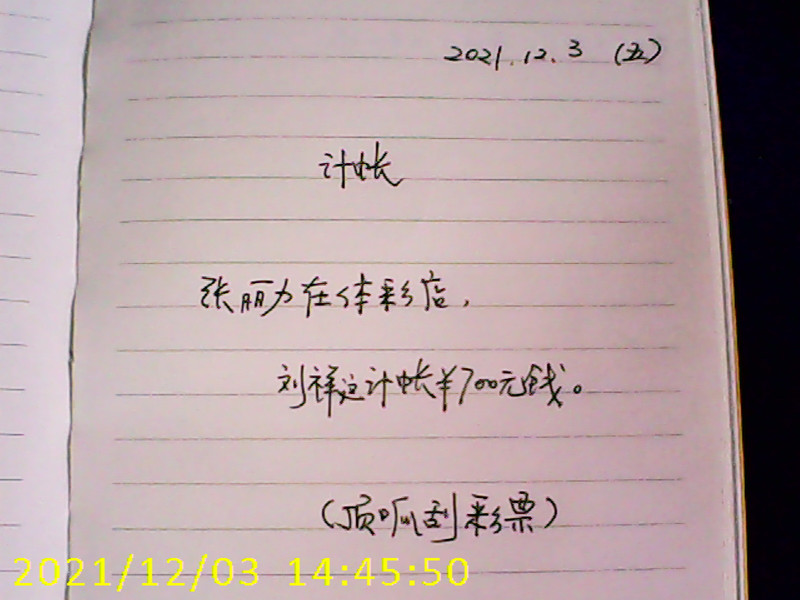 2021.12.3 (五)
计帐
张丽力在体彩店,
刘祥这计帐¥700元钱。
(顶呱刮彩票)
2021/12/03 14:45:50